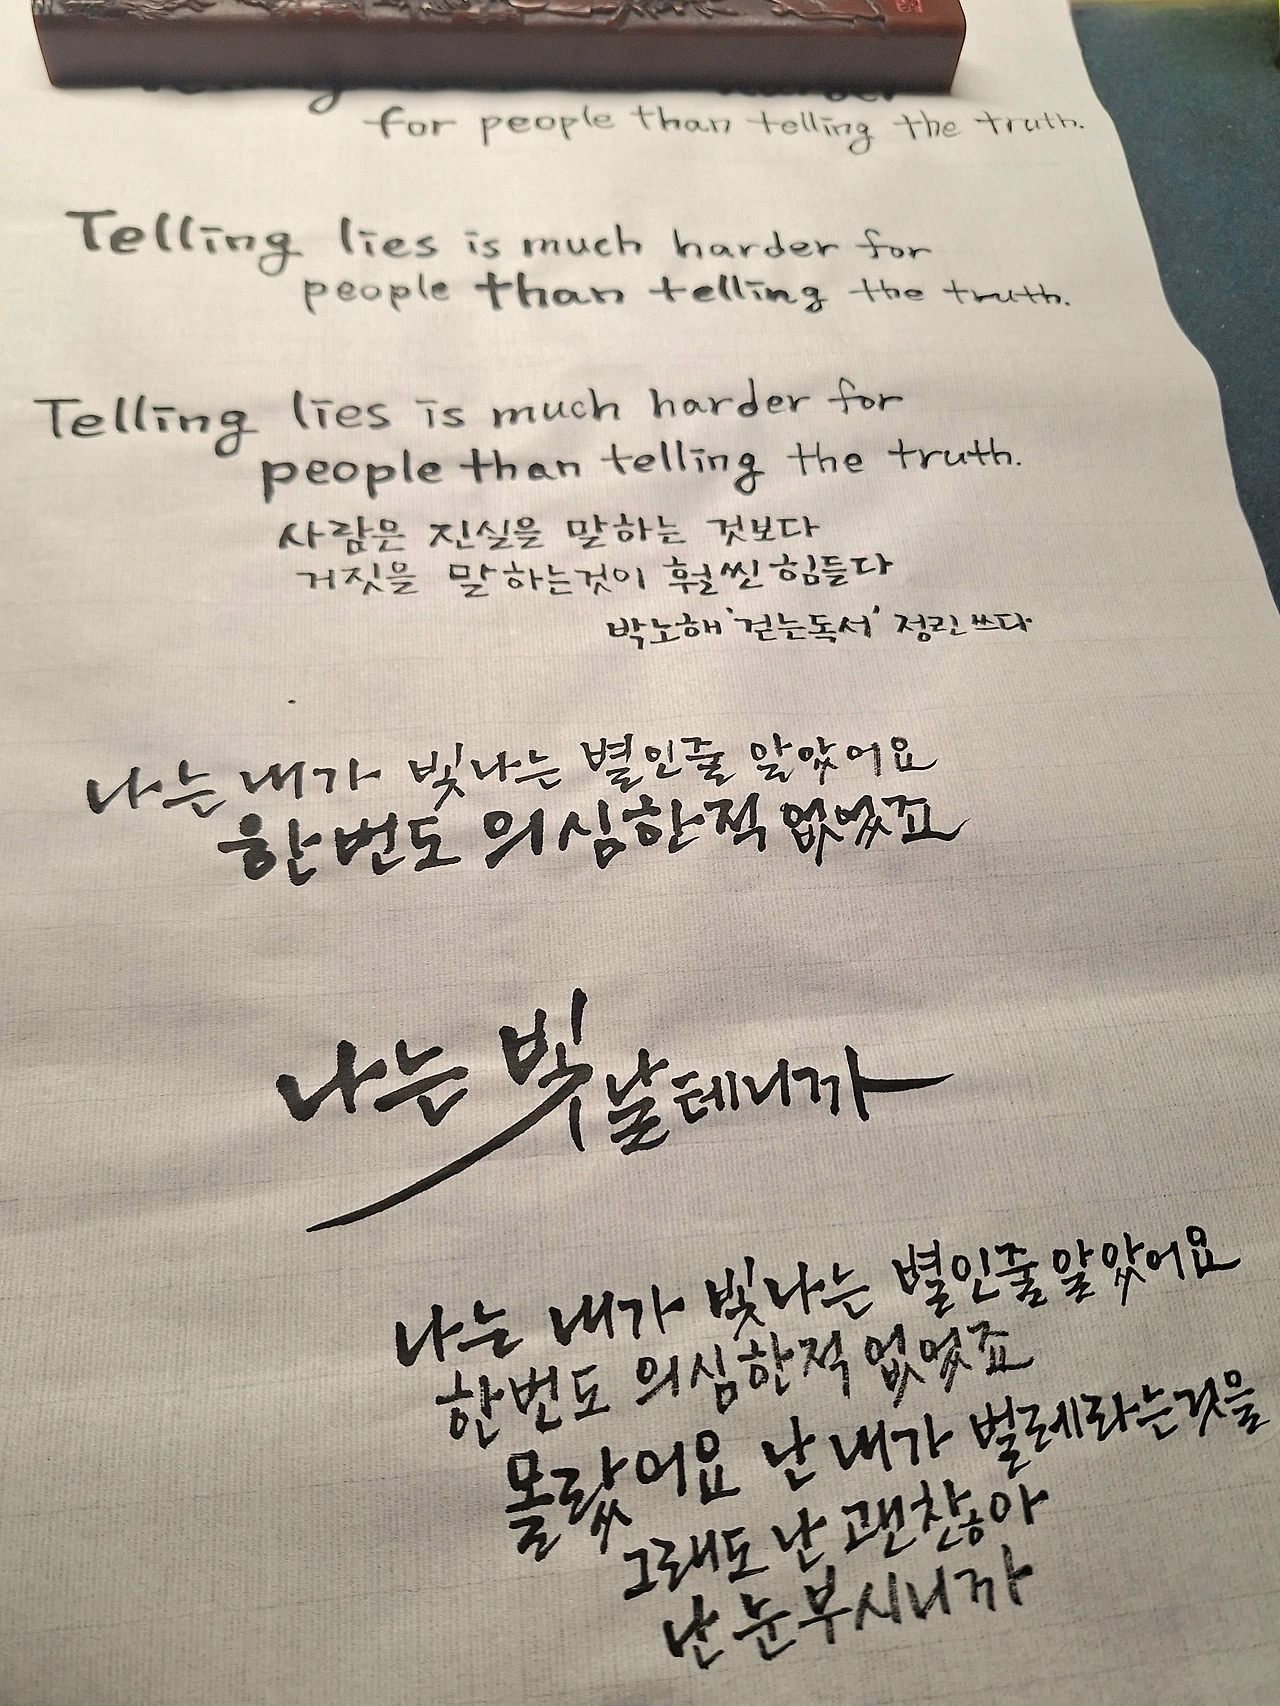 for people than telling the truth.
Telling lies is much harder for
people than telling the truth.
Telling lies is much harder for
people than telling the truth.
사람은 진실을 말하는 것보다
거짓을 말하는것이 훨씬 힘들다
박노해 '걷는독서' 정린 쓰다
나는 내가 빛나는 별인줄 알았어요
한번도 의심한적 없었죠
나는 빛날테니까
나는 내가 빛나는 별인줄 알았어요
한번도 의심한적 없었죠
몰랐어요 난 내가 벌레라는것을
그래도 난 괜찮아
난 눈부시니까